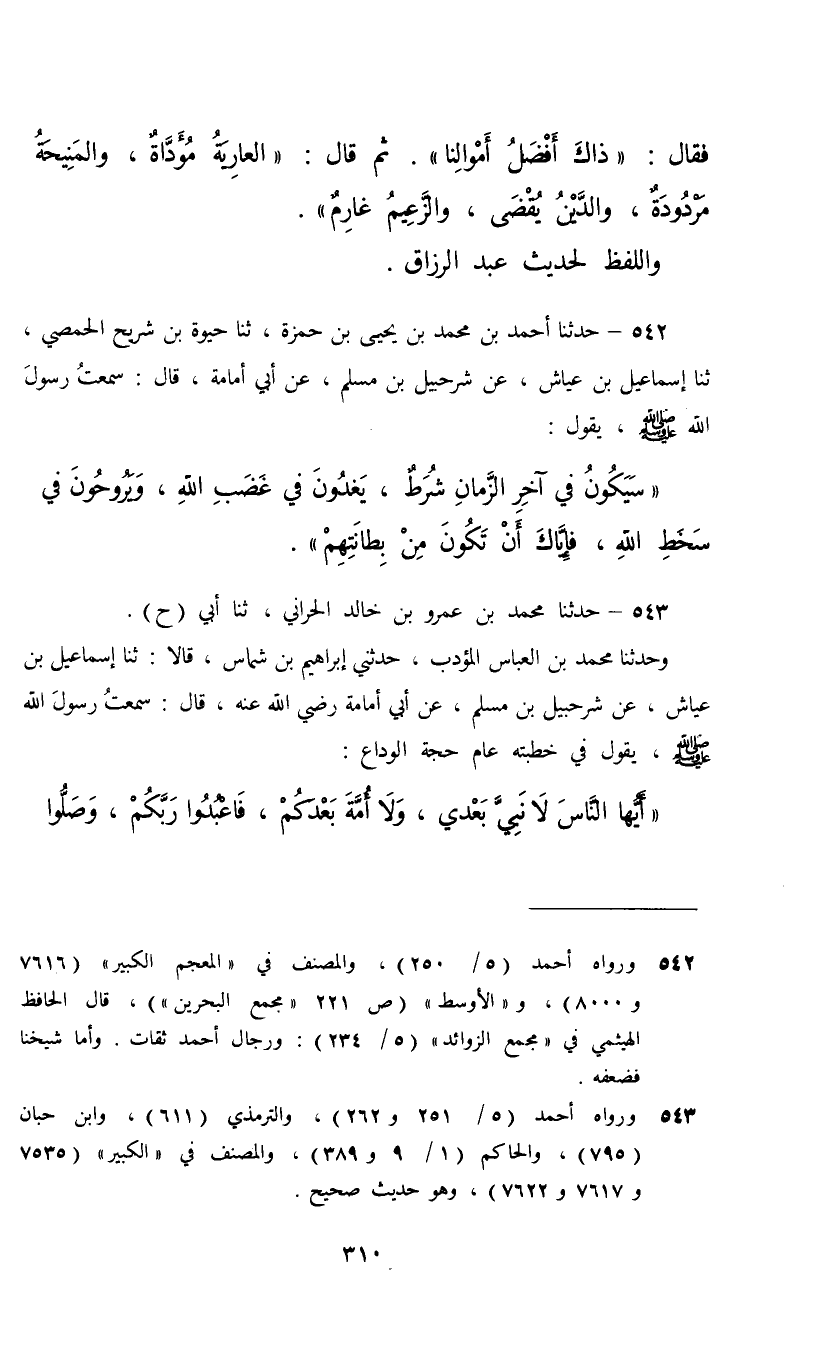 فقال : « ذاكَ أَفْضَلُ أَمْوالِنا» . ثم قال : « العارِيَةُ مُؤَدَّاةٌ ، والمَنِيحَةُ
مَرْدُودَةٌ ، والدَّيْنُ يُقْضَى ، والزَّعِيمُ غارِمٌ» .
واللفظ لحديث عبد الرزاق .
٥٤٢ – حدثنا أحمد بن محمد بن يحيى بن حمزة ، ثنا حيوة بن شريح الحمصي ،
ثنا إسماعيل بن عياش ، عن شرحبيل بن مسلم ، عن أبي أمامة ، قال : سمعتُ رسولَ
الله ﷺ ، يقول :
« سَيَكُونُ في آخِرِ الزَّمانِ شُرَطٌ ، يَغدُونَ في غَضَبِ اللهِ ، وَيَرُوحُونَ في
سَخَطِ اللهِ ، فإيَّاكَ أَنْ تَكُونَ مِنْ بِطانَتِهِمْ» .
٥٤٣ – حدثنا محمد بن عمرو بن خالد الحراني ، ثنا أبي (ح) .
وحدثنا محمد بن العباس المؤدب ، حدثني إبراهيم بن شماس ، قالا : ثنا إسماعيل بن
عياش ، عن شرحبيل بن مسلم ، عن أبي أمامة رضي الله عنه ، قال : سمعتُ رسولَ الله
ﷺ ، يقول في خطبته عام حجة الوداع :
« أَيُّها النَّاسَ لَا نَبِيَّ بَعْدي ، وَلَا أُمَّةَ بَعْدَكُمْ ، فَاعْبُدُوا رَبَّكُمْ ، وَصَلُّوا
٥٤٢ ورواه أحمد (٥/ ٢٥٠) ، والمصنف في «المعجم الكبير» (٧٦١٦
و ٨٠٠٠) ، و «الأوسط» (ص ٢٢١ «مجمع البحرين») ، قال الحافظ
الهيثمي في «مجمع الزوائد» (٥/ ٢٣٤) : ورجال أحمد ثقات . وأما شيخنا
فضعفه .
٥٤٣ ورواه أحمد (٥/ ٢٥١ و ٢٦٢) ، والترمذي (٦١١) ، وابن حبان
(٧٩٥) ، والحاكم (١/ ٩ و ٣٨٩) ، والمصنف في «الكبير» (٧٥٣٥
و ٧٦١٧ و ٧٦٢٢) ، وهو حديث صحيح .
٣١٠